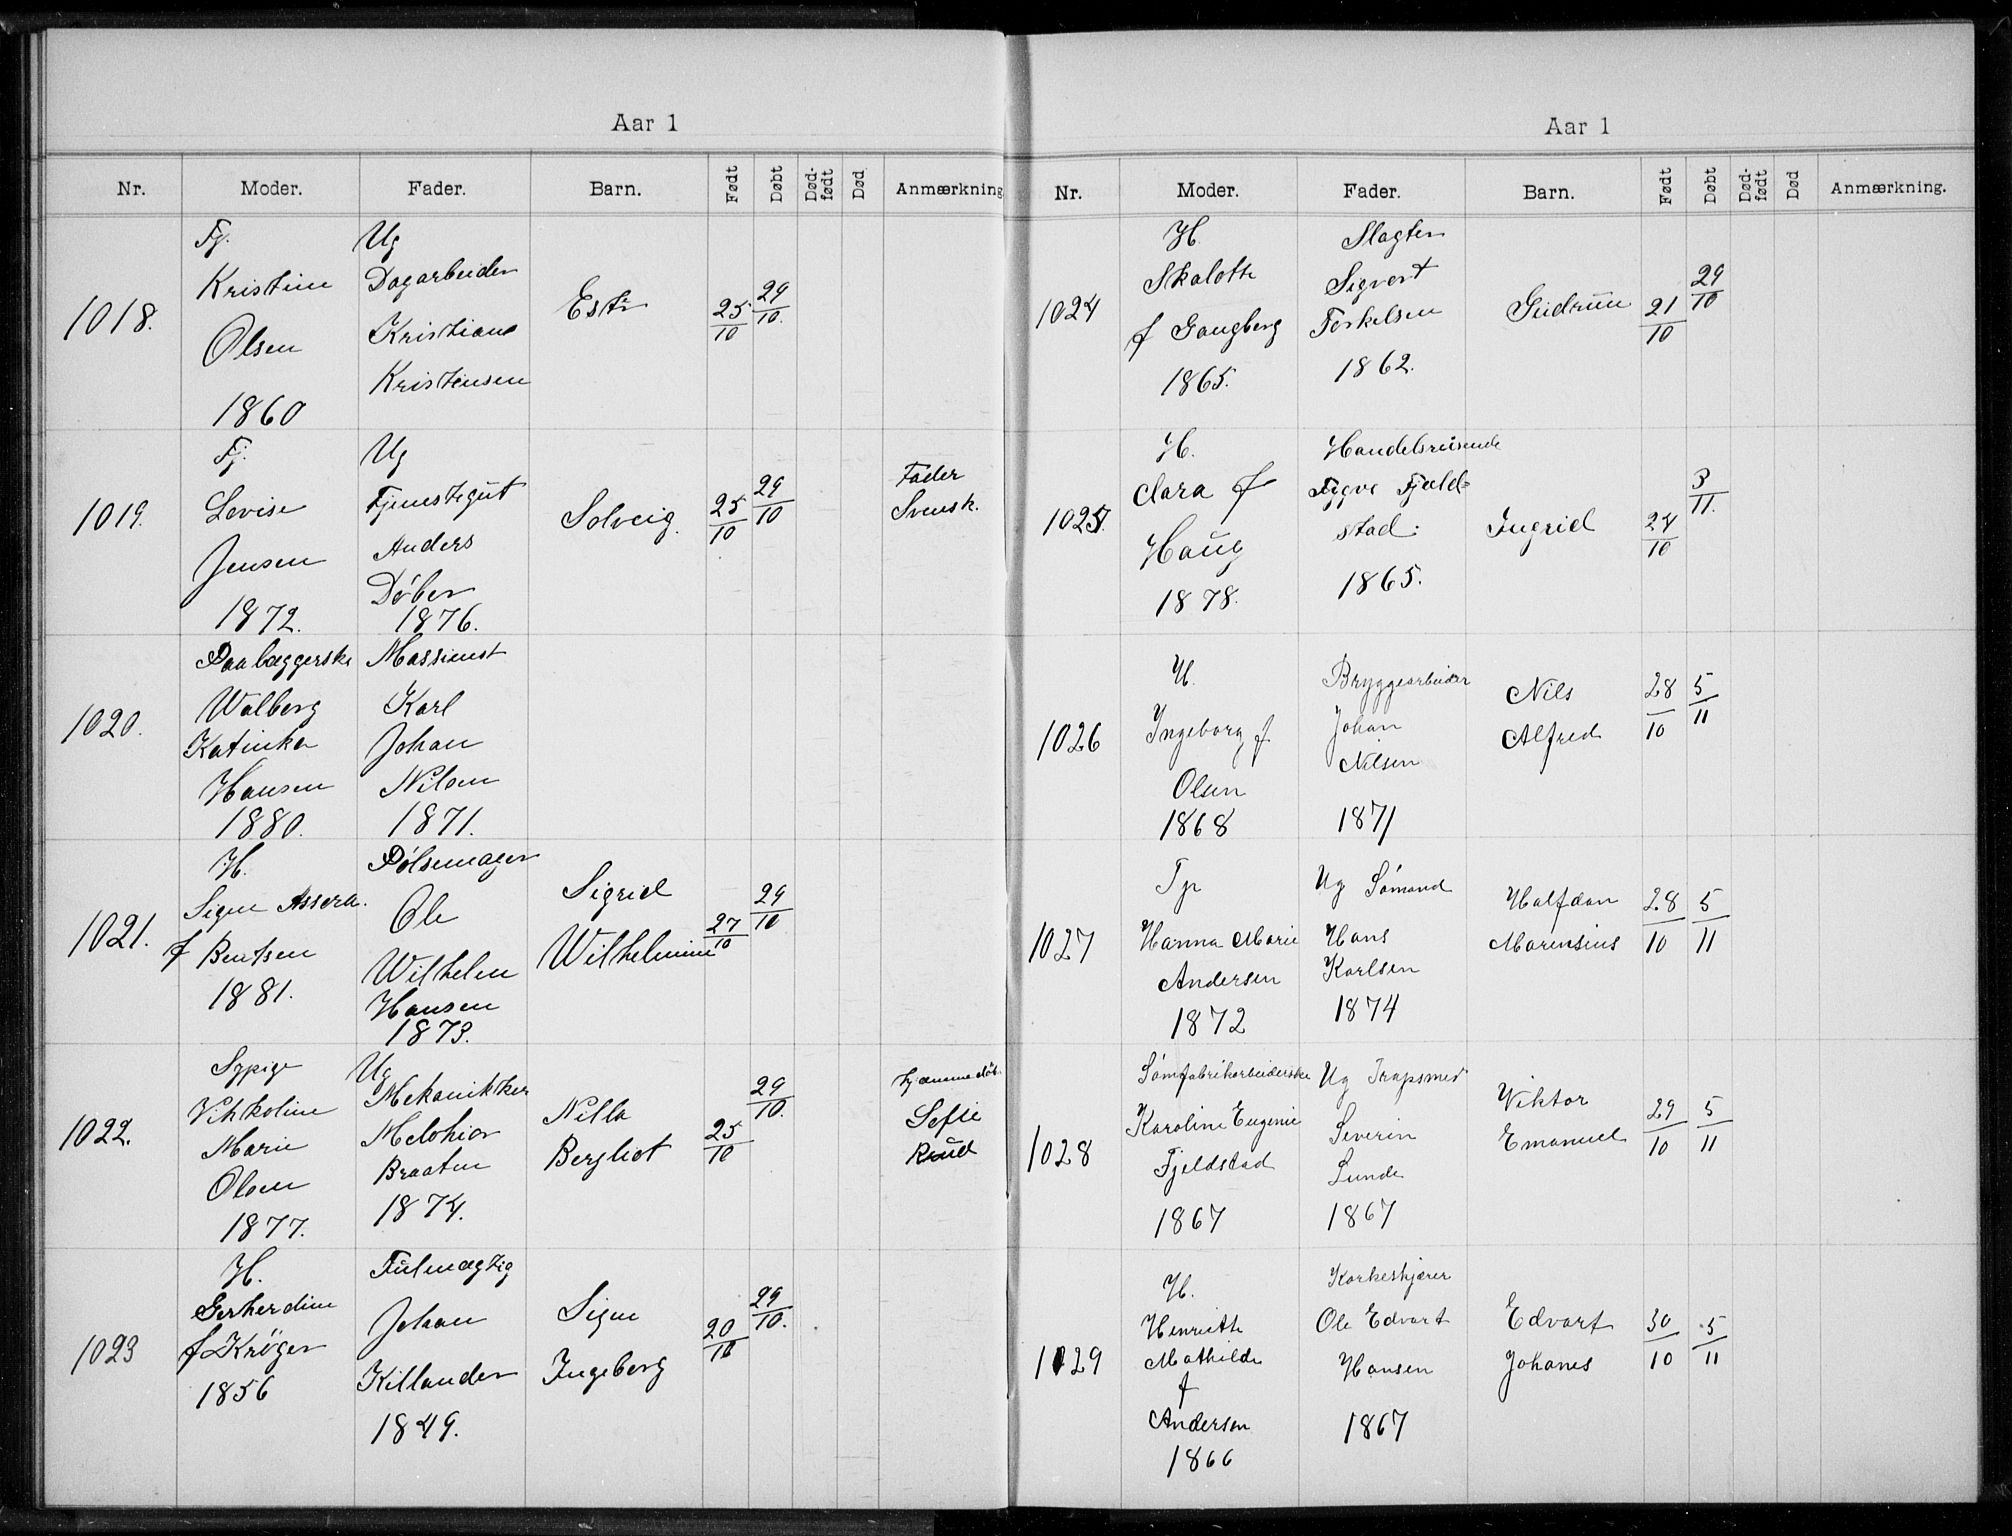 Aar 1
Nr. Moder. Fader. Barn. Født Døbt Død-født Død Anmærkning
1018.
Fj.
Kristine
Olsen
1860
Ug
Dagarbeider
Kristian
Kristensen
25/10
29/10.
1019.
Fj.
Lovise
Jensen
1872.
Ug
Tjenestegut
Anders
Døber
1876.
Solveig.
25/10
29/10
Fader
Svensk.
1020.
Paalæggerske
Walborg
Katinka
Hansen
1880.
Massinist
Karl
Johan
Nilsen
1871.
1021.
H.
Signe Assera.
f Bentsen
1881.
Pølsemager
Ole
Wilhelm
Hansen
1873.
Sigrid
Wilhelmine
27/10
29/10
1022.
Sypige
Marie
Olsen
1877.
Ug
Mekanikker
Melchior
Braaten
1874.
Nilla
Bergliot
25/10
29/10.
hjemmedøb.
Sofie
Ruud
1023
H.
Gerherdine
f Krøger
1856
Fulmægtig
Johan
Killander
1849.
Signe
Ingeborg
20/10
29/10.
Aar 1
Nr. Moder. Fader. Barn. Født Døbt Død-født Død Anmærkning.
1024
H.
Skalotte
f Gangberg
1865.
Slagter
Sigvart
Torkelsen
1862.
Gudrun
21/10
29/10
1025.
H.
Clara f
Haug
1878.
Handelsreisende
Tygve Fjeld-
stad.
1865.
Ingrid
24/10
3/11.
1026
H.
Ingeborg f
Olsen
1868
Bryggearbeider
Johan
Nilsen
1871
Nils
Alfred
28/10
5/11
1027
Tp
Hanna Marie
Andersen
1872
Ug Sømand
Hans
Karlsen
1874
Halfdan
Marensius
28/10
5/11
1028
Sømfabrikarbeiderske
Karoline Eugenie
Fjeldstad
1867
Ug
Severin
Lunde
1867
Viktor
Emanuel
29/10
5/11
1029
H.
Henriette
Mathilde
f
Andersen
1866
Korkeskjærer
Ole Edvart
Hansen
1867
Edvart
Johanes
30/10
5/11